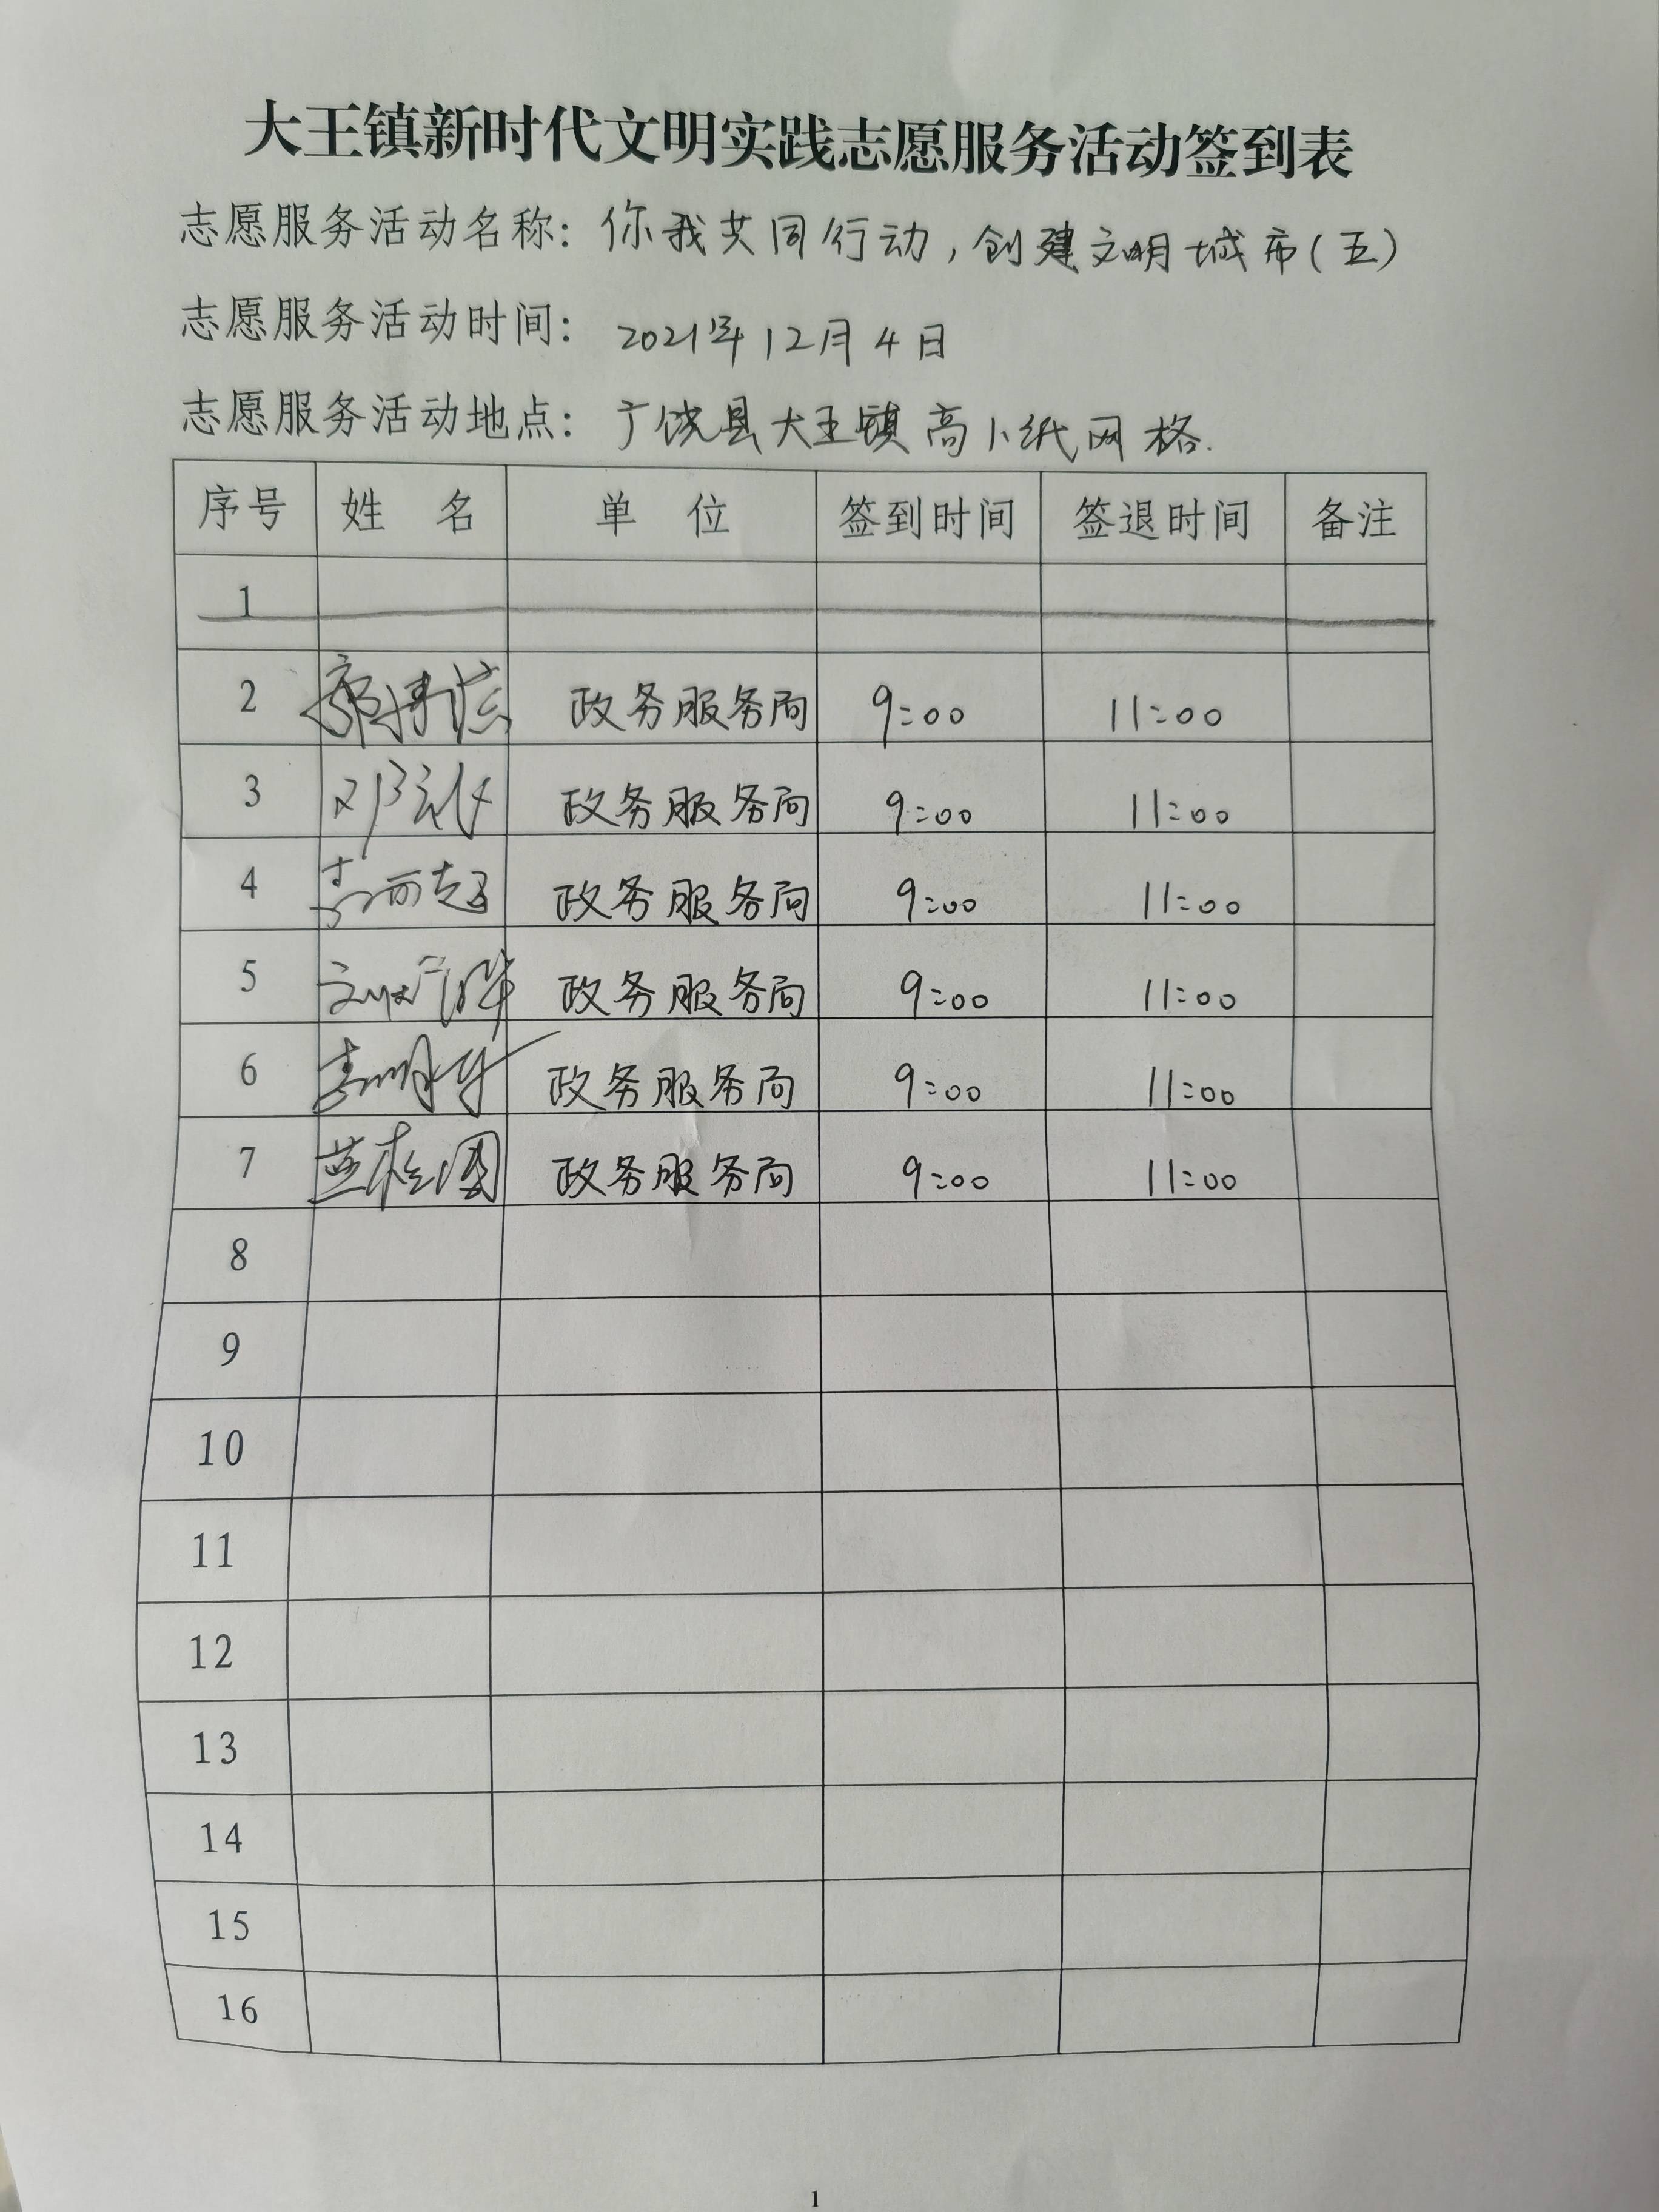 大王镇新时代文明实践志愿服务活动签到表
志愿服务活动名称：你我共同行动，创建文明城市（五）
志愿服务活动时间：2021年12月4日
志愿服务活动地点：广饶县大王镇高小纸网格.
序号 姓 名 单 位 签到时间 签退时间 备注
1
2 政务服务局 9:00 11:00
3 政务服务局 9:00 11:00
4 政务服务局 9:00 11:00
5 政务服务局 9:00 11:00
6 政务服务局 9:00 11:00
7 政务服务局 9:00 11:00
8
9
10
11
12
13
14
15
16
1